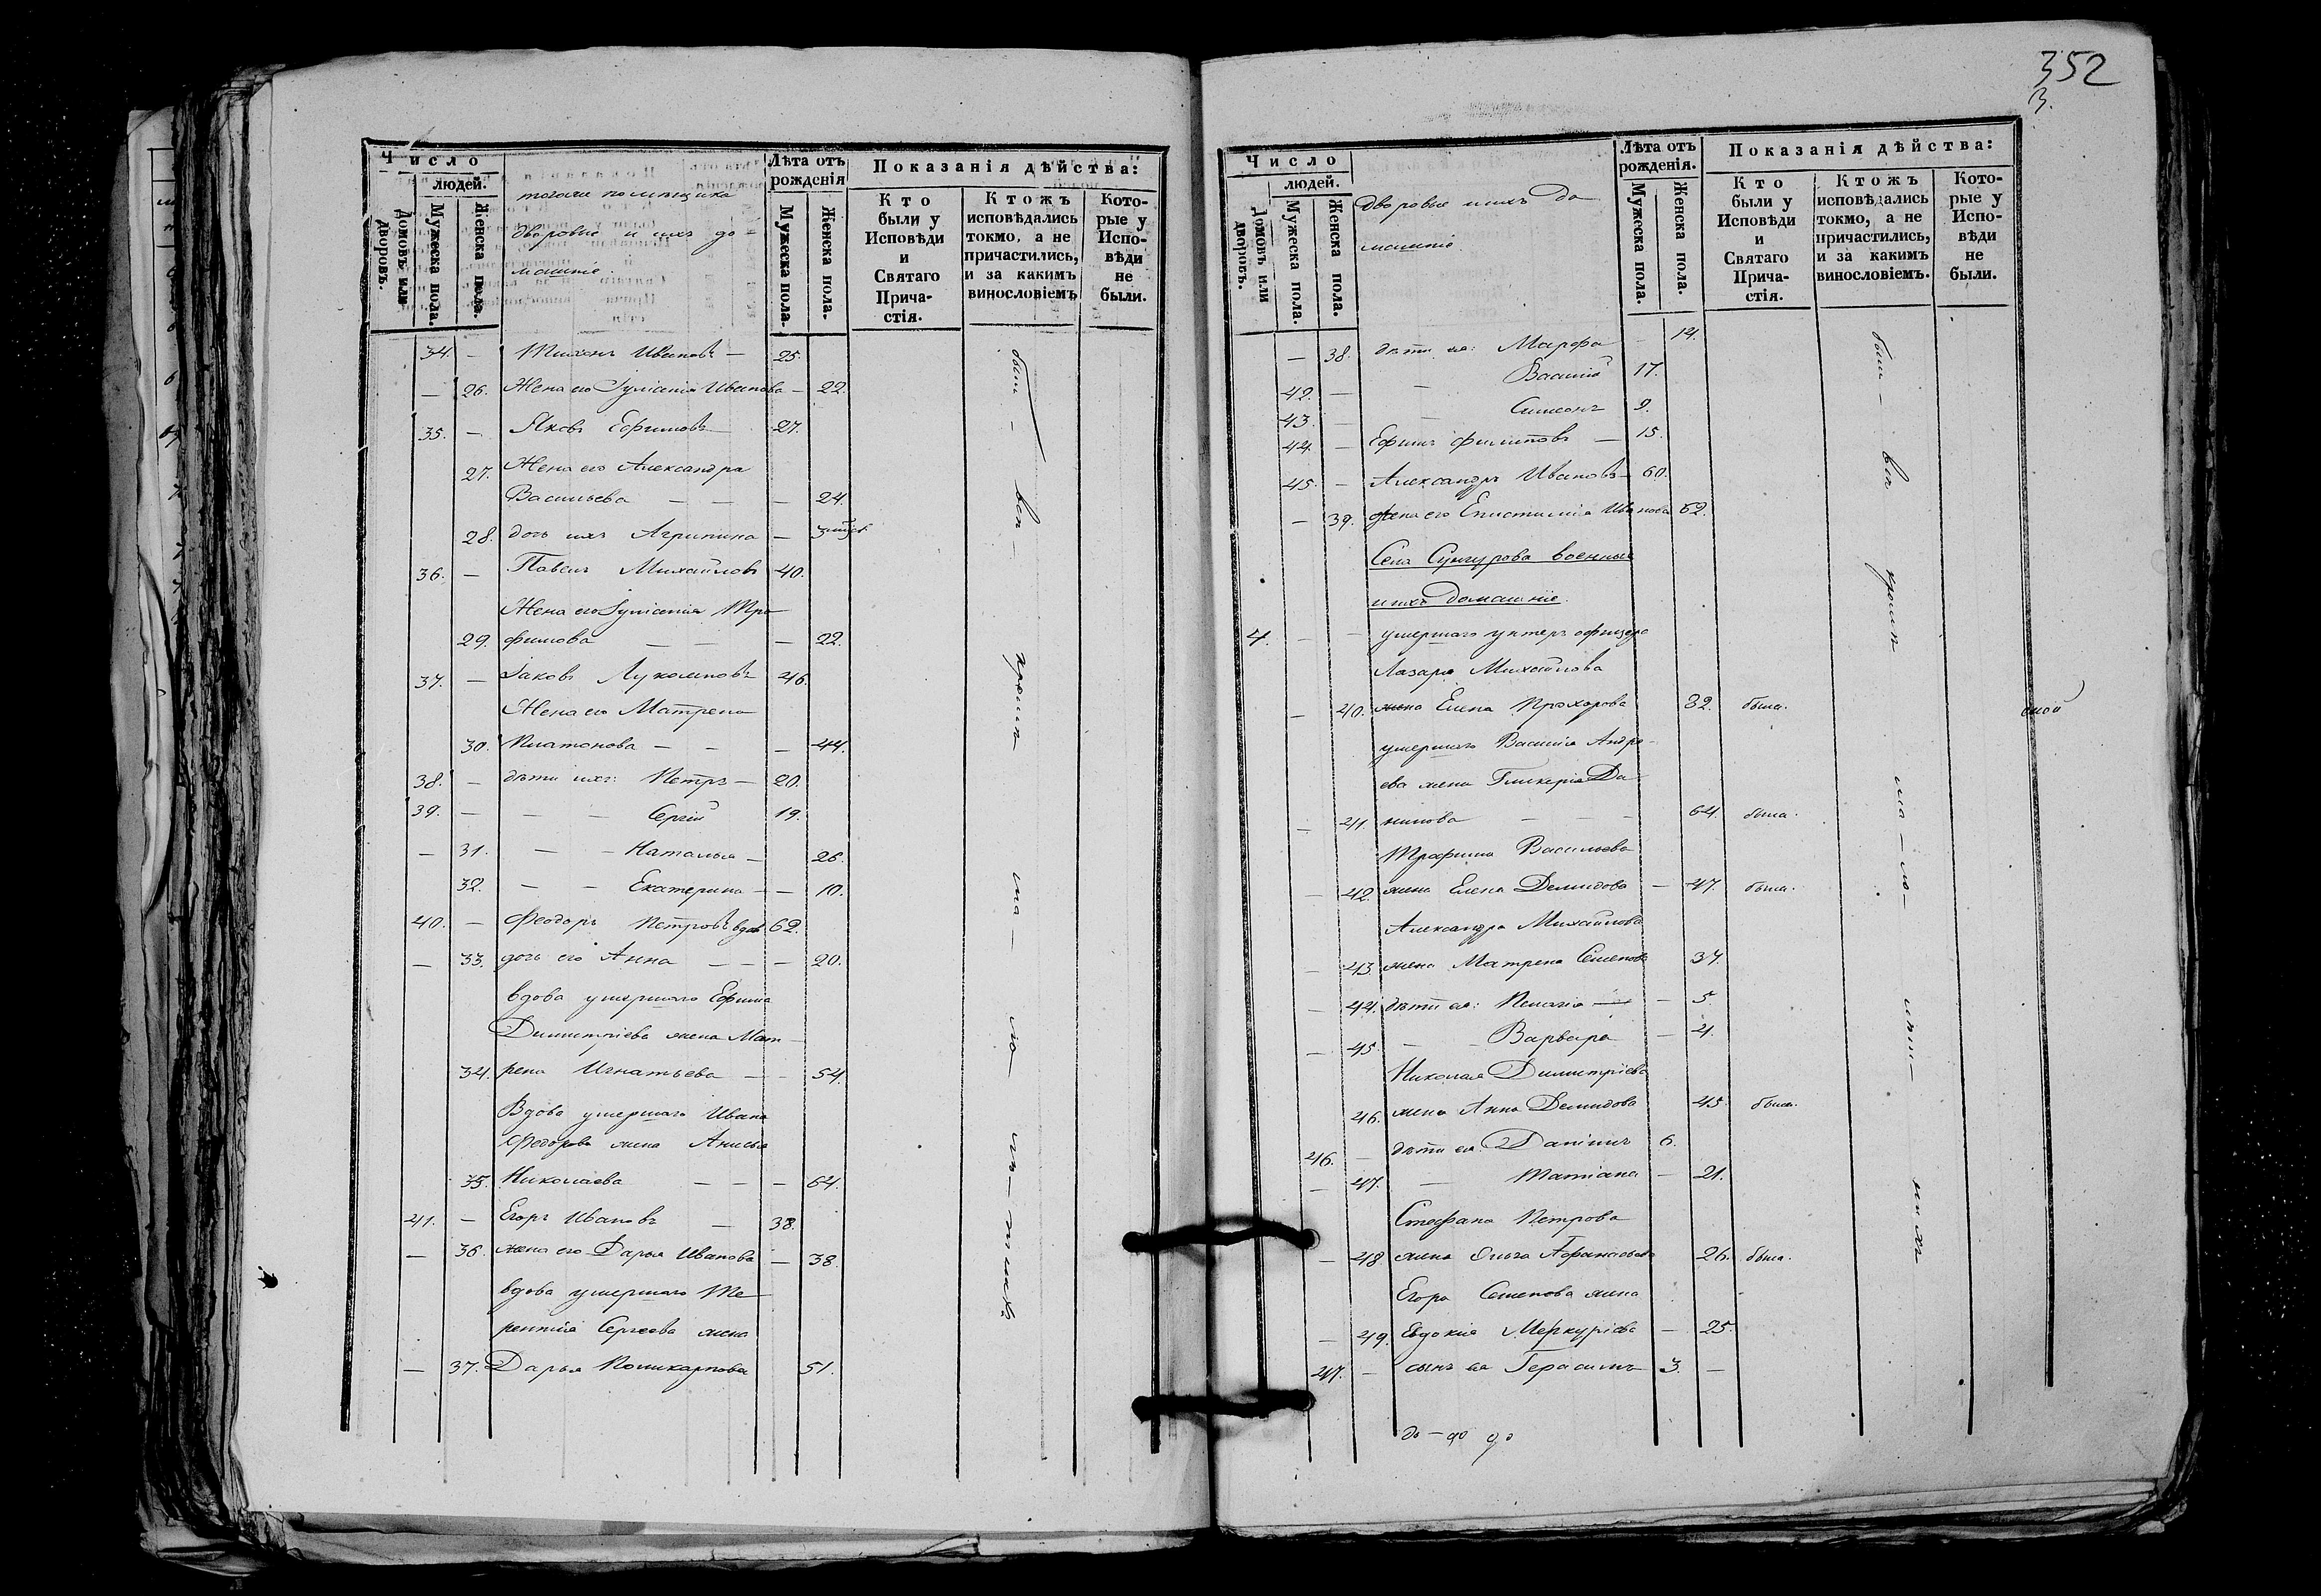 352
3.
Число
людей.
Домовъ или дворовъ.
Мужеска пола.
Женска пола.
тогоже помѣщика
дворовые и ихъ до-
машніе.
Лѣта отъ рожденія
Мужеска пола.
Женска пола.
Показанія дѣйства:
Кто были у Исповѣди и Святаго Причастія.
Ктожъ исповѣдались токмо, а не причастились, и за какимъ винословіемъ
Которые у Исповѣди не были.
34. — Тихонъ Ивановъ — 25.
— 26. Жена его Іуліанія Иванова — 22.
35. — Яковъ Ефимовъ 27.
27. Жена его Александра
Васильева — — — 24.
28. дочь ихъ Агрипина — 3
36. — Павелъ Михайловъ 40.
Жена его Іуліанія Тро
29. фимова — — — 22.
37. — Іаковъ 46.
Жена его Матрена
30. Платонова — — — 44.
38. — дѣти ихъ: Петръ — 20.
39. — — — Сергій 19.
— 31. — — Наталья — 26.
32. — — Екатерина — — 10.
40. — Феодоръ Петровъ вдов 62.
— 33. дочь его Анна — — — 20.
вдова умершаго Ефима
Димитріева жена Мат-
34. рена Игнатьева — — 54.
Вдова умершаго Ивана
Феодорова жена Анисья
35. Николаева — — — 64.
41. — Егоръ Ивановъ — 38.
— 36. жена его Дарья Иванова — 38.
вдова умершаго Те
рентія Сергеева жена
— 37. Дарья Поликарпова 51.
Число
людей.
Домовъ или дворовъ.
Мужеска пола.
Женска пола.
Дворовые и ихъ До
машніе.
Лѣта отъ рожденія.
Мужеска пола.
Женска пола.
Показанія дѣйства:
Кто были у Исповѣди и Святаго Причастія.
Ктожъ исповѣдались токмо, а не причастились, и за какимъ винословіемъ.
Которые у Исповѣди не были.
— 38. дѣти ея: Марфа — 14.
42. — — Василій 17.
43. — — Симеонъ 9.
44. — Ефимъ Филиповъ — 15.
45. — Александръ Ивановъ — 60.
— 39. жена его Епистимія Иванова 62.
Села Сунгурова военные
и ихъ домашніе.
4. — — умершаго унтеръ офицера
Лазаря Михайлова
— 40. жена Елена Прохорова 32. была.
умершаго Василія Андре-
ева жена Гликерія Да
— 41. нилова — — — 64. была.
Трофима Васильева
— 42. жена Елена Демидова — 47. была.
Александра Михайлова
— 43. жена Матрена Семенова 37.
— 44. дѣти ея: Пелагія — — 5.
— 45. — — Варвара — 4.
Николая Димитріева
46. жена Анна Демидова 45. была.
46. — дѣти ея: Даніилъ 6.
— 47. — Татіана — 21.
Стефана Петрова
— 48. жена Ольга Афанасьева 26. была.
Егора Семенова жена
— 49. Евдокия Меркуріева — 25.
47. — сынъ ея Герасимъ 3. —